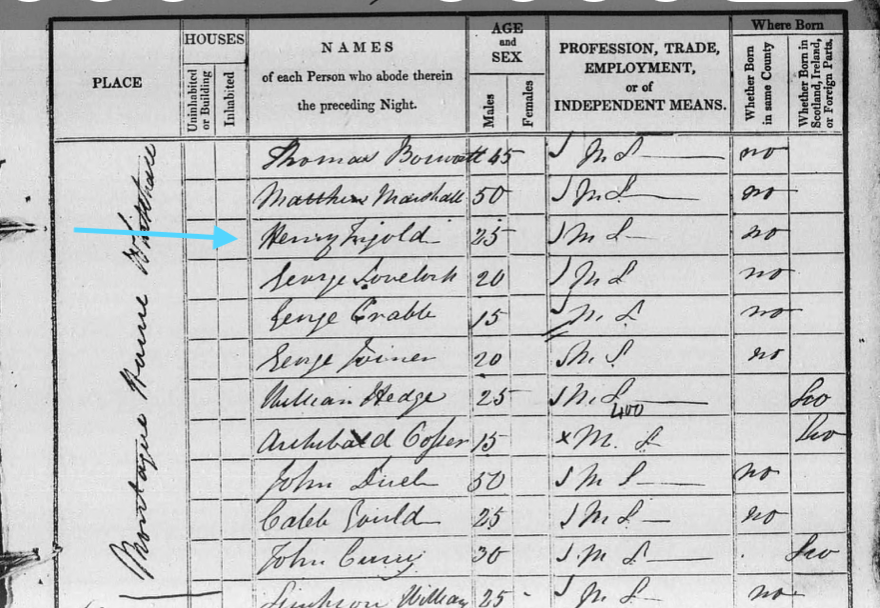 PLACE
HOUSES
Uninhabited or Building
Inhabited
NAMES
of each Person who abode therein
the preceding Night.
AGE
and
SEX
Males
Females
PROFESSION, TRADE,
EMPLOYMENT,
or of
INDEPENDENT MEANS.
Where Born
Whether Born in same County
Whether Born in Scotland, Ireland, or Foreign Parts.
Montague House Whitehall
Thomas 45 M S no
Matthew Marshall 50 M S no
Henry 25 M S no
George Lovelock 20 M S no
George Crabb 15 M S no
George Joiner 20 M S no
William Hedge 25 M S Sco
400
Archibald 15 x M. S Sco
John 50 M S no
Caleb Gould 25 M S no
John 30 M S Sco
William 25 M S no